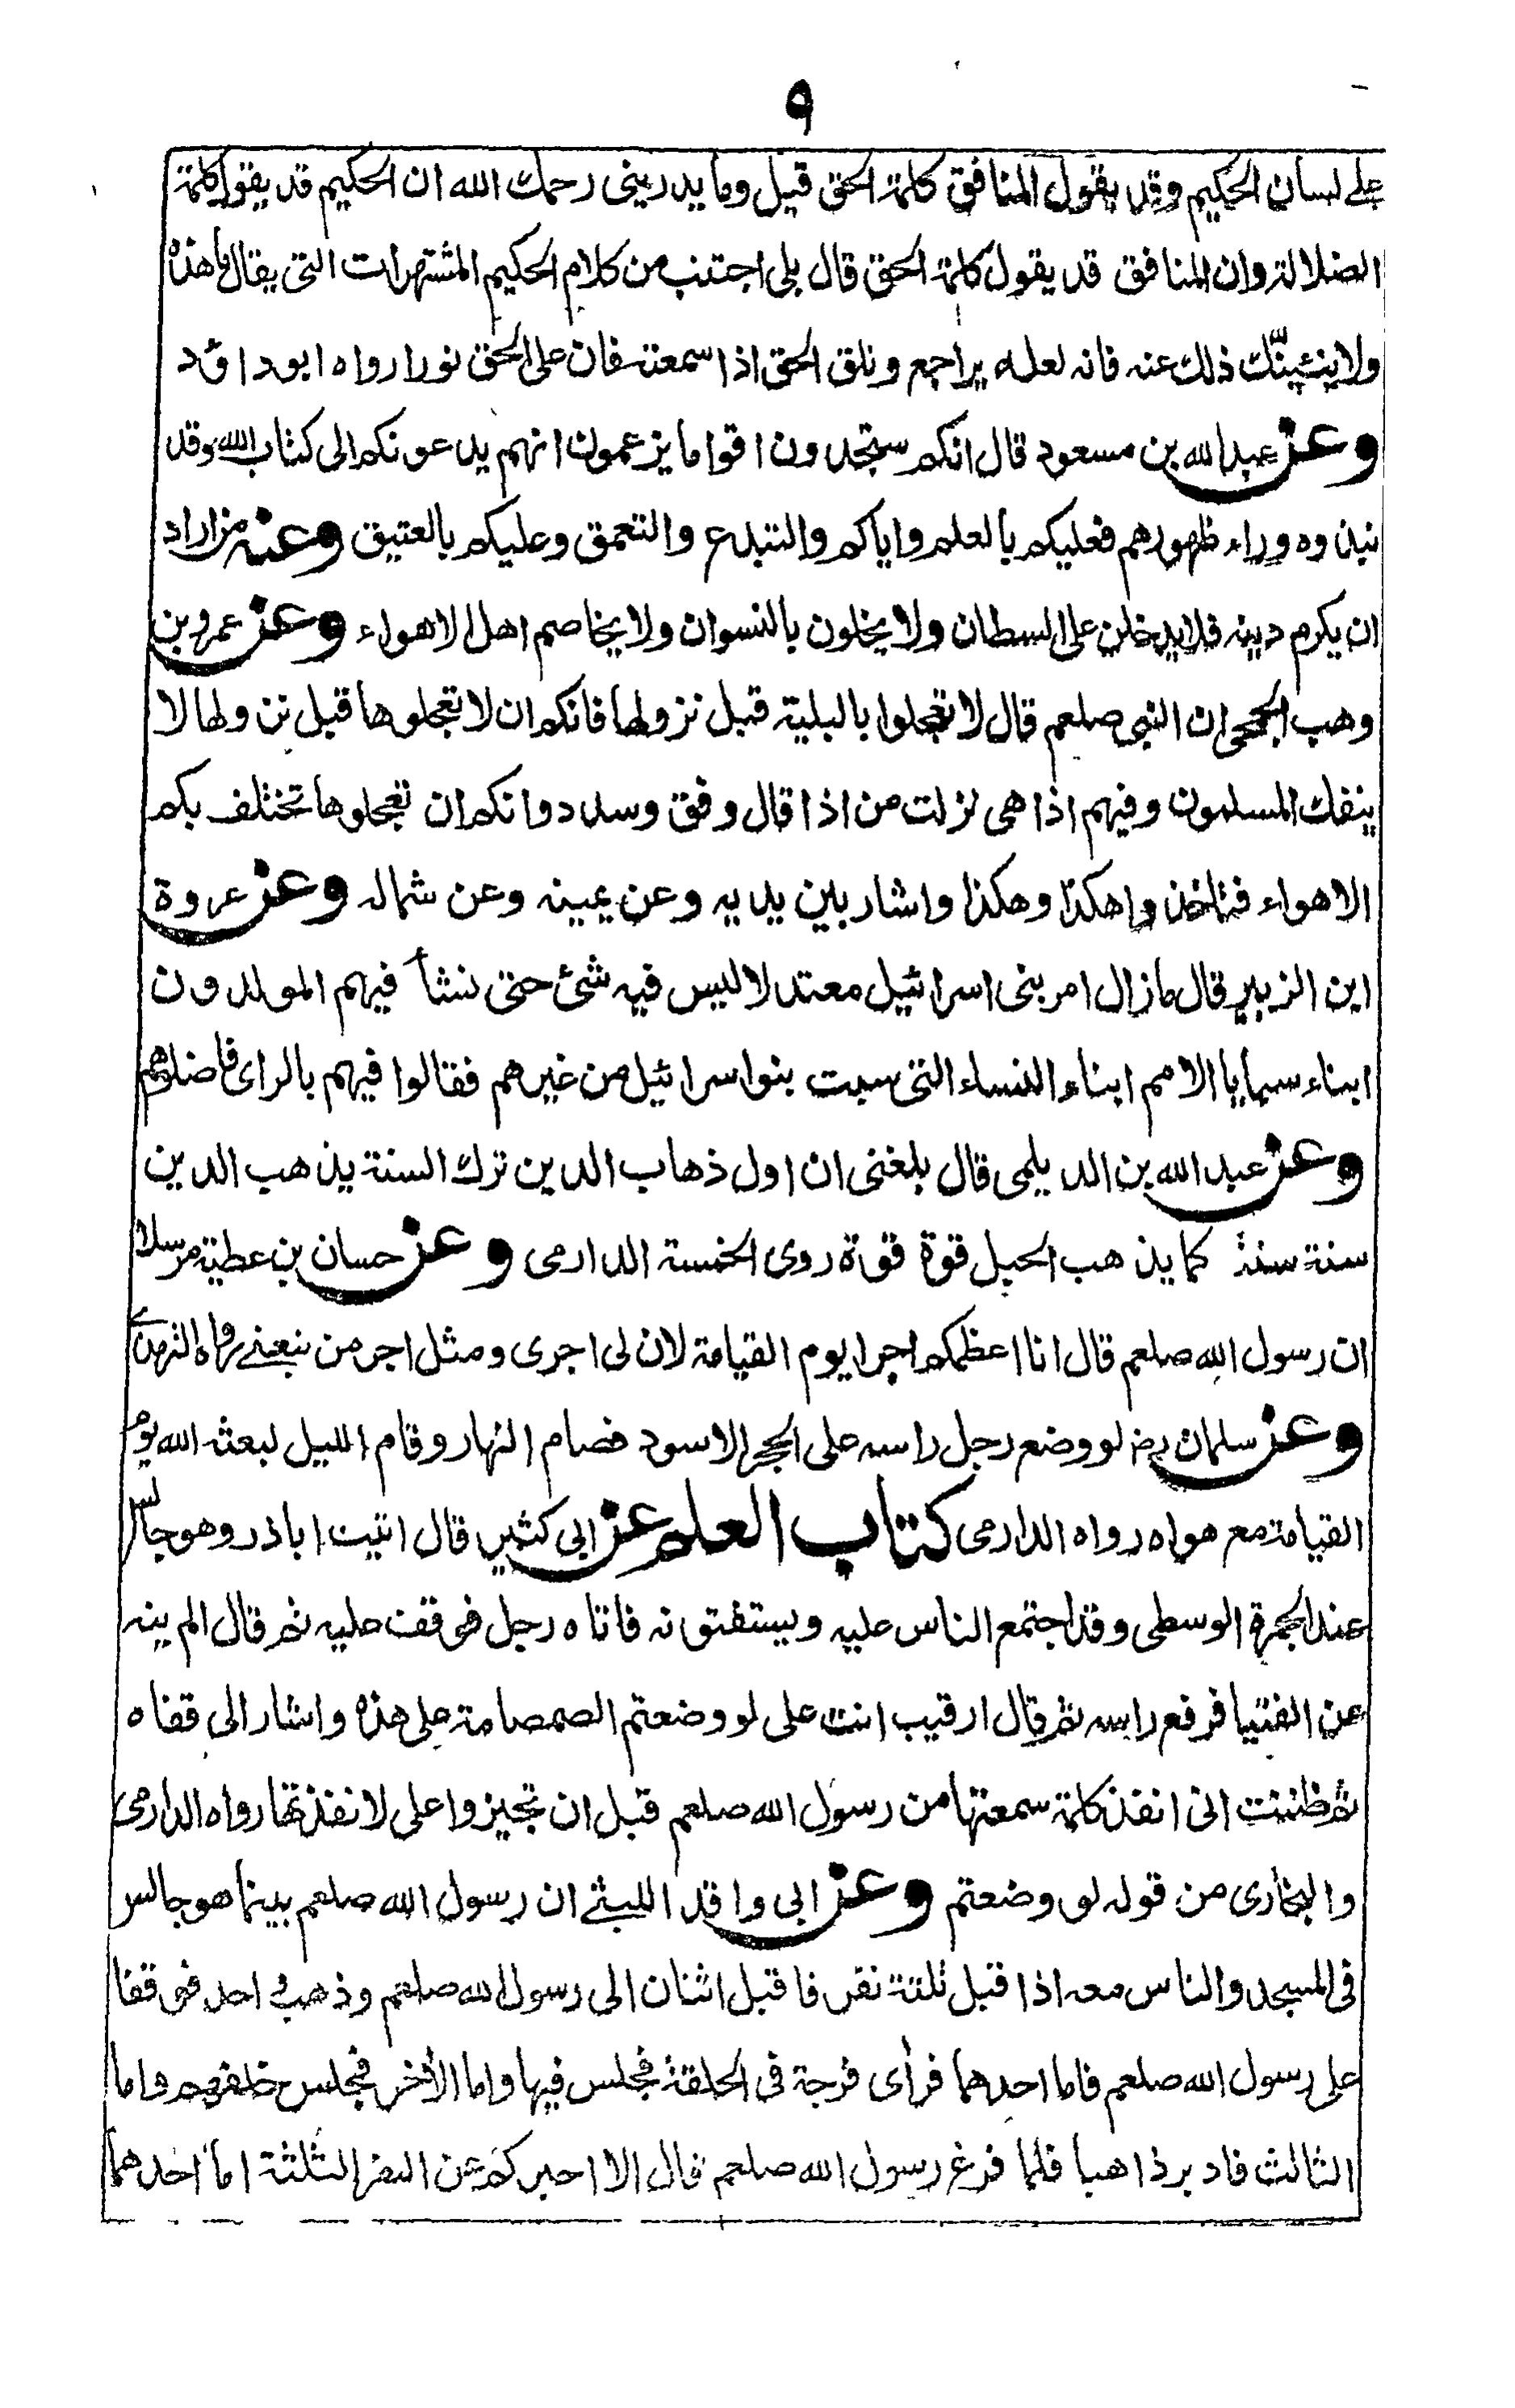 ٩
على لسان الحكيم وقد يقول المنافق كلمة الحق قيل وما يدريني رحمك الله ان الحكيم قد يقول كلمة
الضلالة وان المنافق قد يقول كلمة الحق قال بلى اجتنب من كلام الحكيم المشتهرات التى يقال ما هذه
ولا يثنينّك ذلك عنه فانه لعله يراجع وتلق الحق اذا سمعته فان على الحق نورا رواه ابو داؤد
وعن عبد الله بن مسعود قال انكم ستجدون اقواما يزعمون انهم يدعونكم الى كتاب الله وقد
نبذوه وراء ظهورهم فعليكم بالعلم واياكم والتبدع والتعمق وعليكم بالعتيق وعنه من اراد
ان يكرم دينه فلا يدخلن على السطان ولا يخلون بالنسوان ولا يخاصم اهل الاهواء وعن عمرو بن
وهب الجمحى ان النبى صلعم قال لا تعجلوا بالبلية قبل نزولها فانكم ان لا تعجلوها قبل نزولها لا
ينفك المسلمون وفيهم اذا هى نزلت من اذا قال وفق وسدد وانكم ان تعجلوها تختلف بكم
الاهواء فتاخذوا هكذا وهكذا واشار بين يديه وعن يمينه وعن شماله وعن عروة
ابن الزبير قال ما زال امر بنى اسرائيل معتدلا ليس فيه شئ حتى نشأ فيهم المولدون
ابناء سبايا الامم ابناء النساء التى سبت بنوا سرائيل من غيرهم فقالوا فيهم بالراى فاضلوهم
وعن عبد الله بن الديلمى قال بلغنى ان اول ذهاب الدين ترك السنة يذهب الدين
سنة سنة كما يذهب الحبل قوة قوة روى الخمسة الدارمى وعن حسان بن عطية مرسلا
ان رسول الله صلعم قال انا اعظمكم اجرا يوم القيامة لان لى اجرى ومثل اجر من تبعنى رواه الترمذى
وعن سلمان رض لو وضع رجل راسه على الحجر الاسود فصام النهار وقام الليل لبعثه الله يوم
القيامة مع هواه رواه الدارمى كتاب العلم عن ابى كثير قال اتيت اباذر وهو جالس
عند الجمرة الوسطى وقد اجتمع الناس عليه ويستفتونه فاتاه رجل فوقف عليه ثم قال الم ينه
عن الفتيا فرفع راسه ثم قال ارقيب انت على لو وضعتم الصمصامة على هذه واشار الى قفاه
ثم ظننت انى انفذ كلمة سمعتها من رسول الله صلعم قبل ان تجيزوا على لانفذتها رواه الدارمى
والبخارى من قوله لو وضعتم وعن ابى واقد الليثى ان رسول الله صلعم بينما هو جالس
فى المسجد والناس معه اذا قبل ثلثة نفر فاقبل اثنان الى رسول الله صلعم وذهب احد فوقفا
على رسول الله صلعم فاما احدهما فرأى فرجة فى الحلقة فجلس فيها واما الأخر فجلس خلفهم واما
الثالث فادبر ذاهبا فلما فرغ رسول الله صلعم قال الا اخبركم عن النفر الثلثة اما احدهما